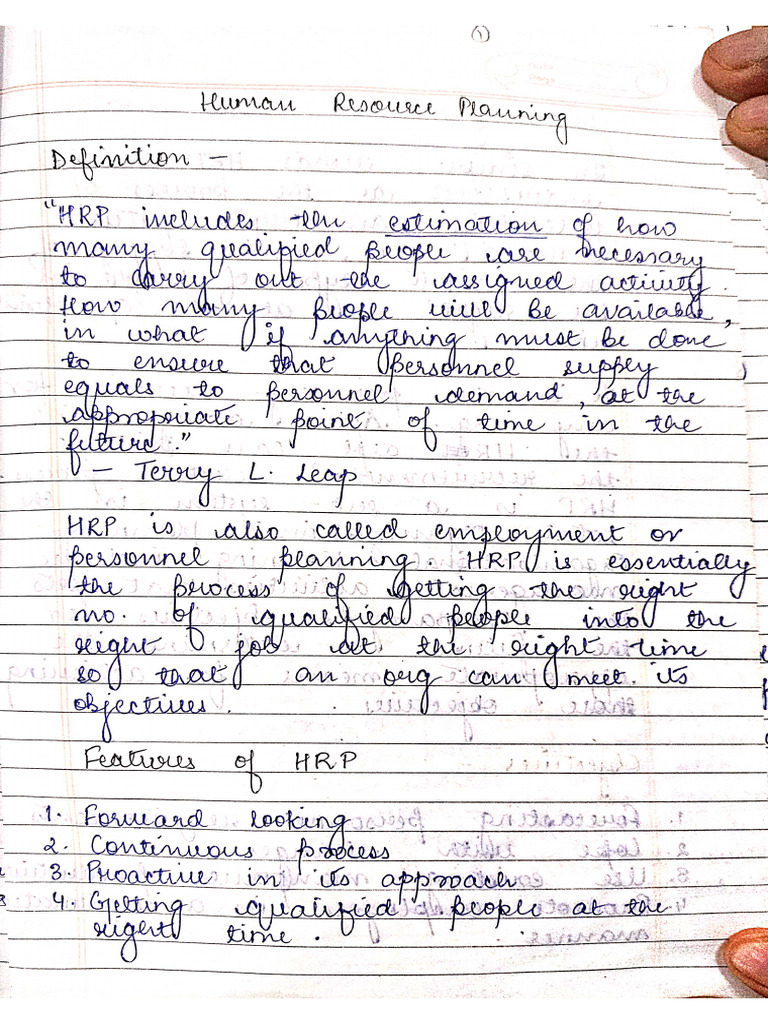 (1)
Human Resource Planning
Definition –
"HRP includes the estimation of how
many qualified people are necessary
to carry out the assigned activity.
How many people will be available,
in what if anything must be done
to ensure that personnel supply
equals to personnel demand, at the
appropriate point of time in the
future."
– Terry L. Leap
HRP is also called employment or
personnel planning. HRP is essentially
the process of getting the right
no. of qualified people into the
right job at the right time
so that an org can meet its
objectives.
Features of HRP
1. Forward looking
2. Continuous process
3. Proactive in its approach
4. Getting qualified people at the
right time.